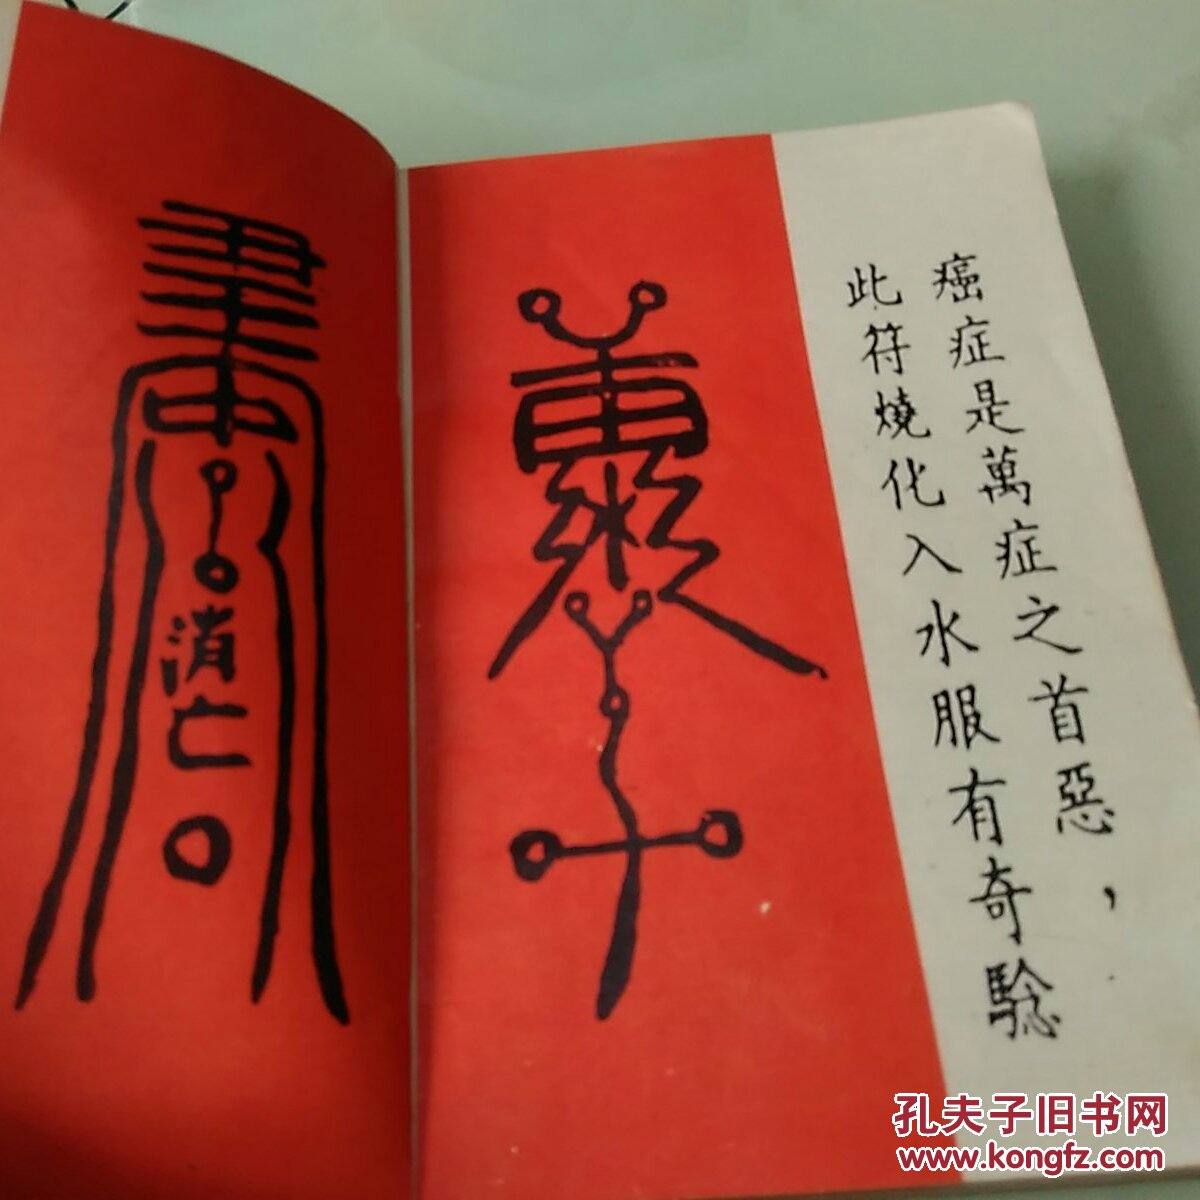 癌症是萬症之首惡，
此符燒化入水服有奇騐
消亡
孔夫子旧书网
www.kongfz.com